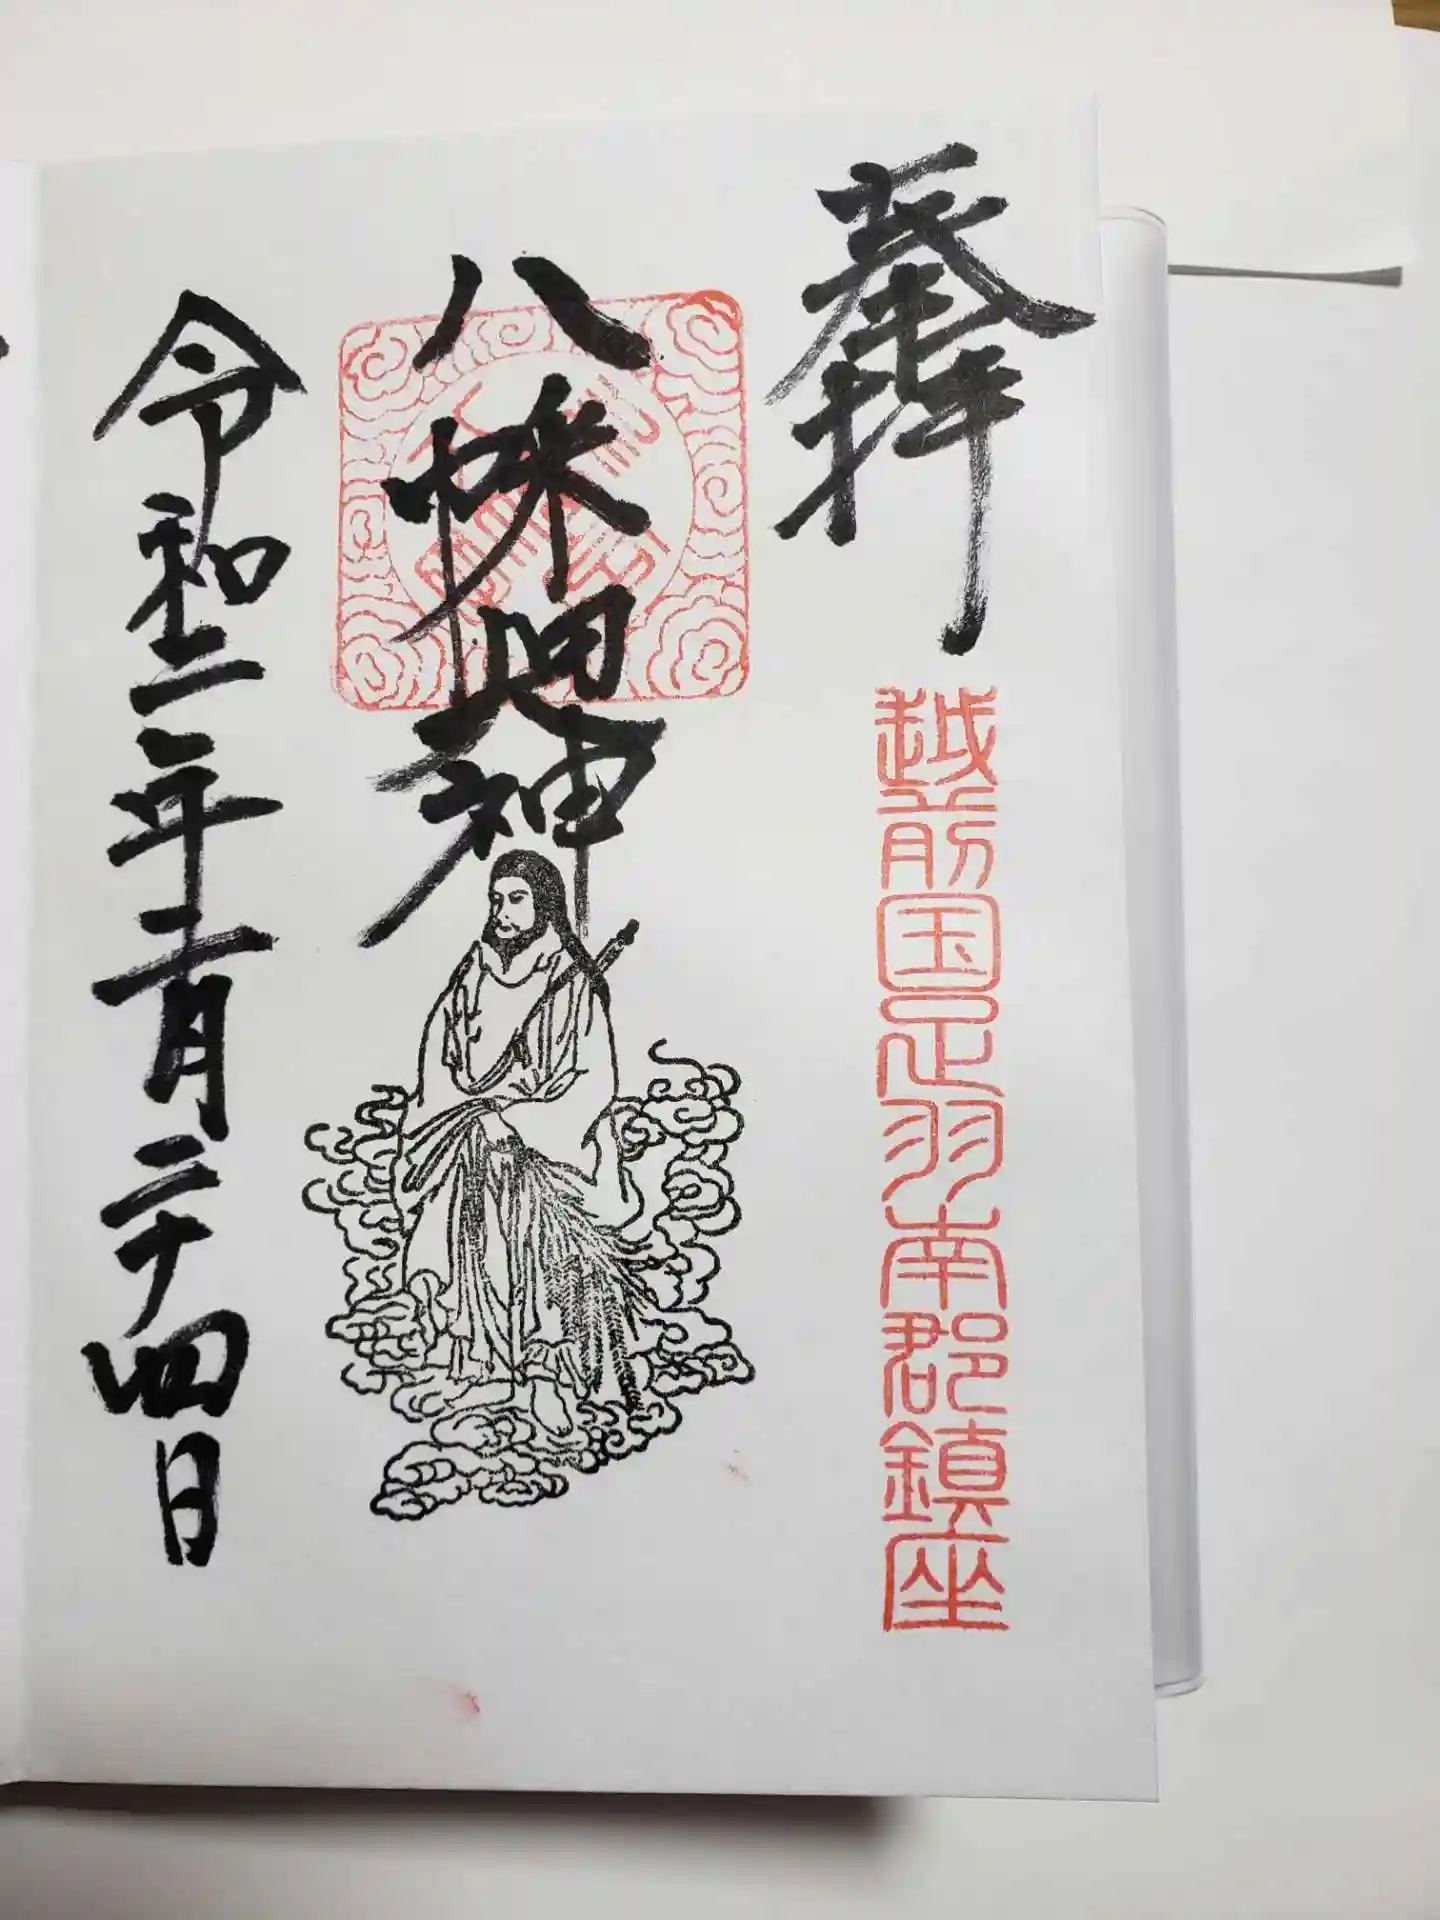 奉拝
越前国足羽南郡鎮座
八
神
令和二年十一月二十四日